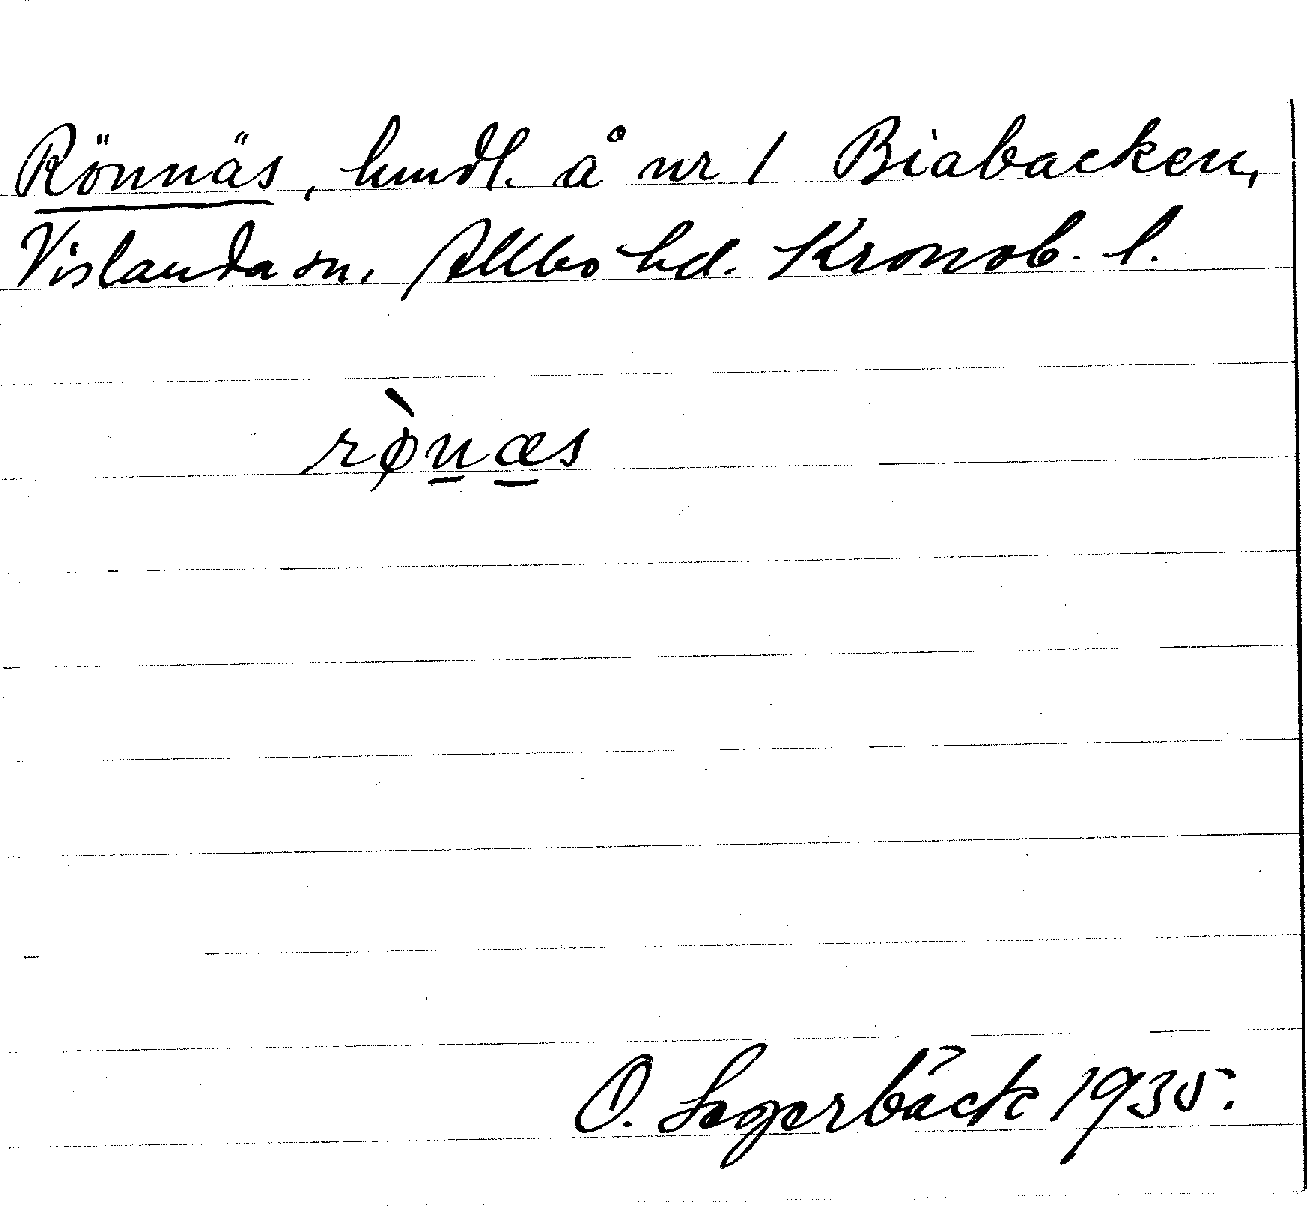 Rönnäs, hmdl. å nr 1 Biabacken,
Vislanda sn. Allbo hd. Kronob. l.
rø̀n̲æ̲s
O. Lagerbäck 1935.